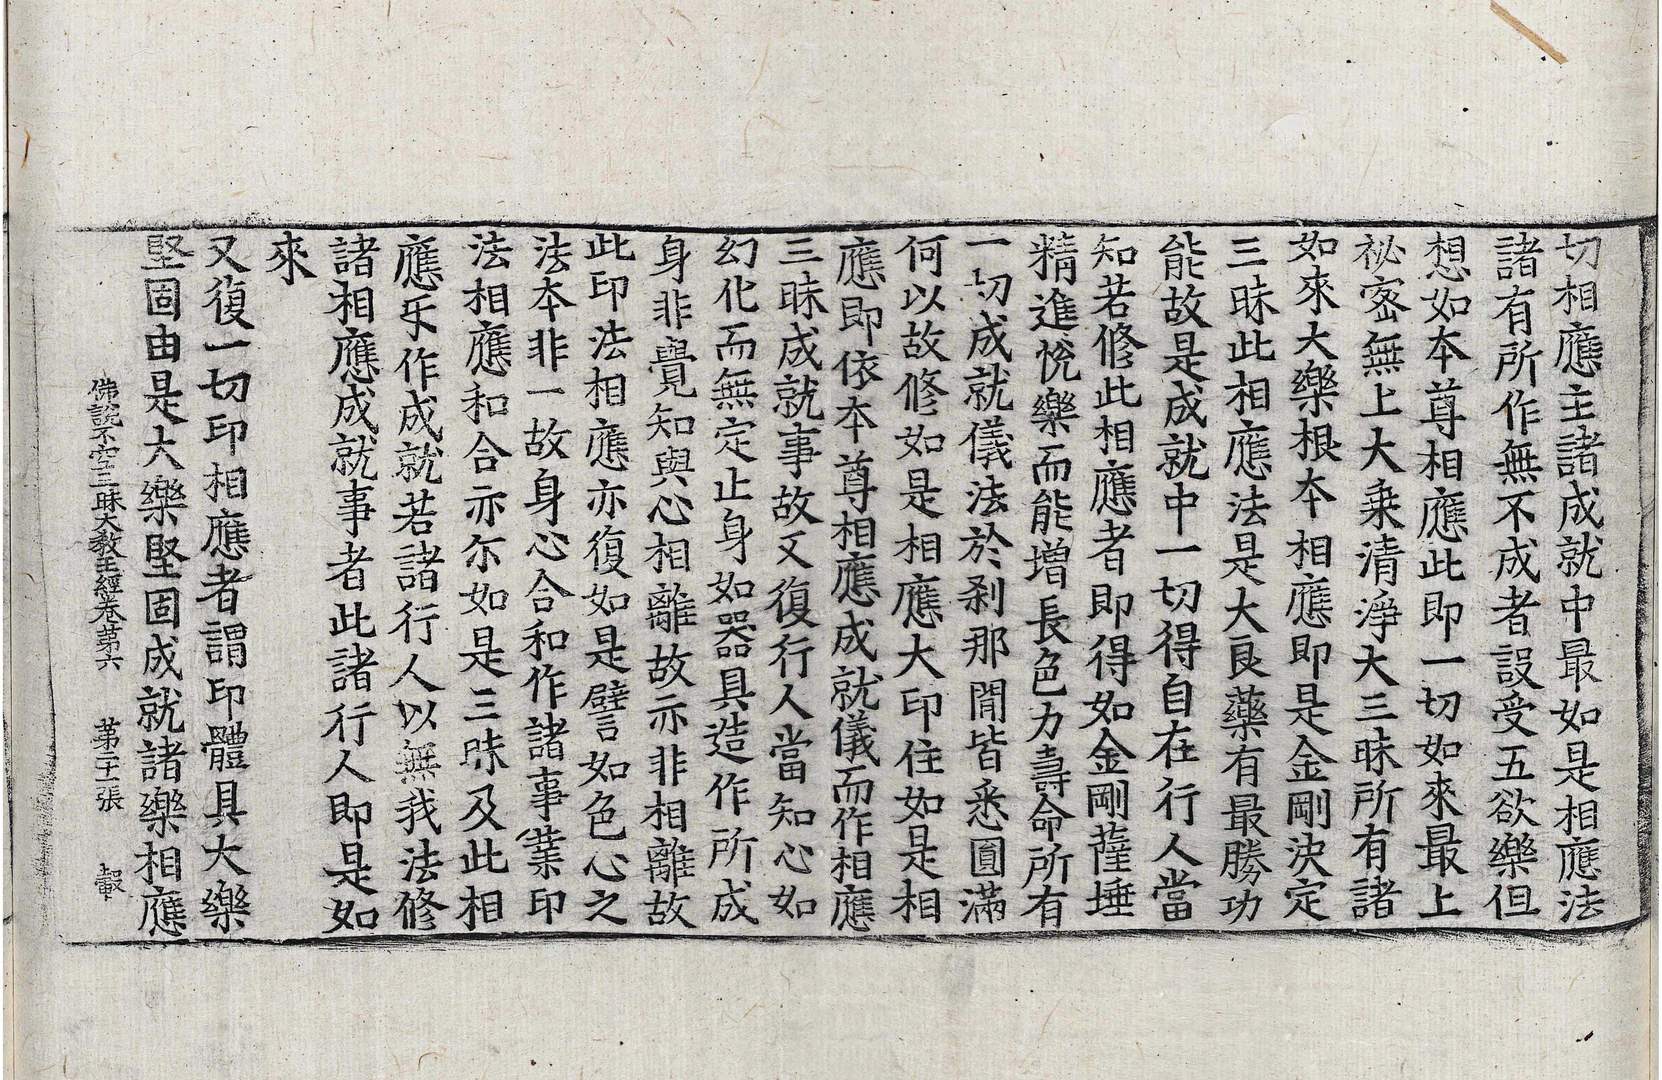 切相應主諸成就中最如是相應法
諸有所作無不成者設受五欲樂但
想如本尊相應此即一切如來最上
祕密無上大乗清淨大三昧所有諸
如來大樂根本相應即是金剛決定
三昧此相應法是大良藥有最勝功
能故是成就中一切得自在行人當
知若修此相應者即得如金剛薩埵
精進悅樂而能增長色力壽命所有
一切成就儀法於剎那間皆悉圓滿
何以故修如是相應大印住如是相
應即依本尊相應成就儀而作相應
三昧成就事故又復行人當知心如
幻化而無定止身如器具造作所成
身非覺知與心相離故亦非相離故
此印法相應亦復如是譬如色心之
法本非一故身心合和作諸事業印
法相應和合亦尔如是三昧及此相
應乐作成就若諸行人以無我法修
諸相應成就事者此諸行人即是如
來
又復一切印相應者謂印體具大樂
堅固由是大樂堅固成就諸樂相應
佛說不空三昧大教王經卷第六　第二十一張　縠